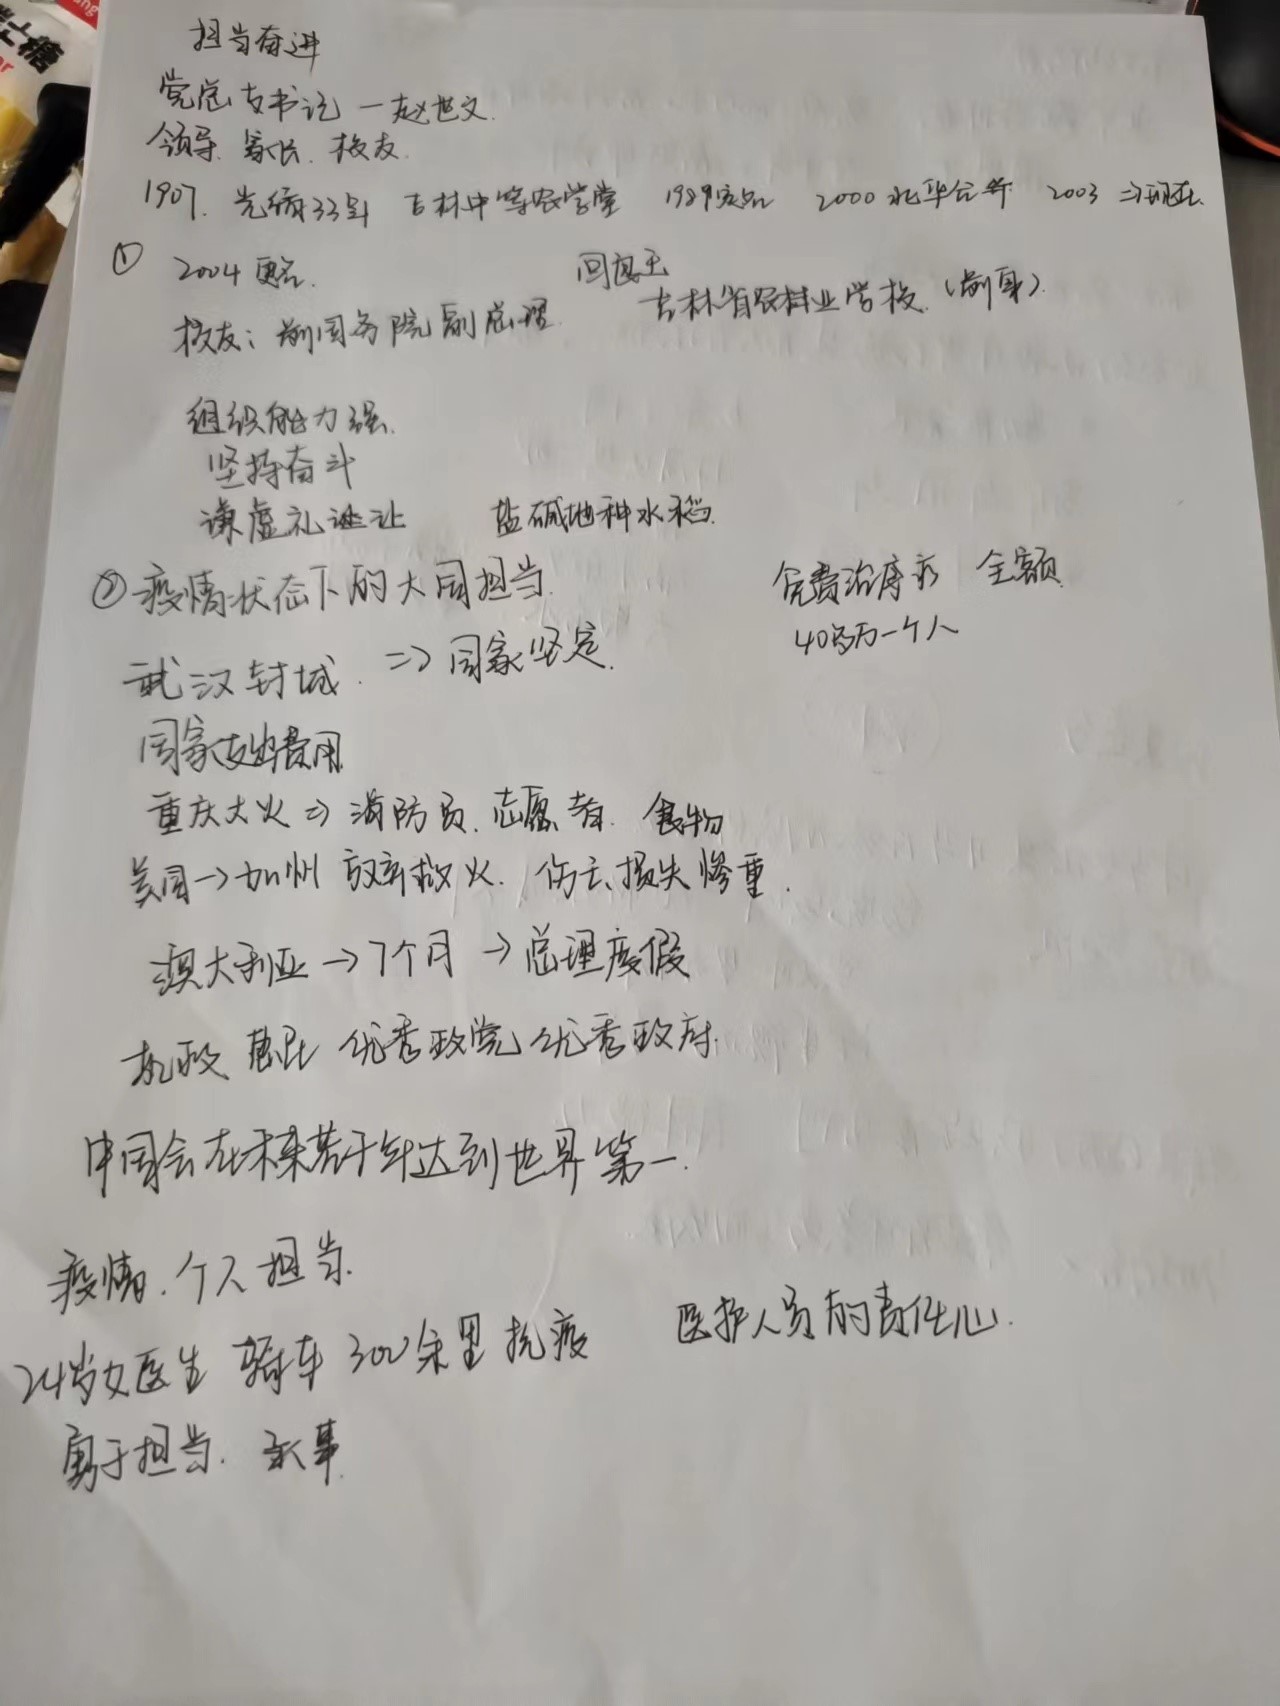 担当奋进
党总支书记 — 赵世文
领导、家长、校友
1907. 光绪33年 吉林中等农学堂 1989定名 2000 北华合并 2003 ⇒现在
① 2004 更名 回母玉
校友：前国务院副总理 吉林省农林业学校.(前身)
组织能力强
坚持奋斗
谦虚礼让 盐碱地种水稻
② 疫情状态下的大国担当 免费治疗 全额
40多万一个人
武汉封城 ⇒ 国家坚定
国家支出费用
重庆大火 ⇒ 消防员、志愿者 食物
美国→加州 放弃救火、伤亡、损失惨重.
澳大利亚→7个月→总理度假
执政 优秀政党 优秀政府
中国会在未来若干年达到世界第一.
疫情、个人担当.
24岁女医生 骑车 300余里抗疫 医护人员的责任心.
勇于担当.